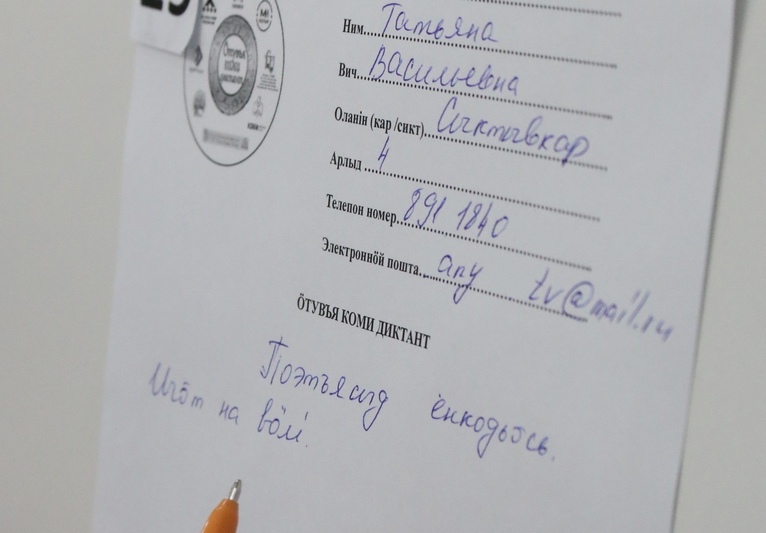 Ним Татьяна
Вич Васильевна
Оланін (кар /сикт) Сыктывкар
Арлыд 4
Телепон номер 891 1840
Электроннӧй пошта any tv@mail.ru
ӦТУВЪЯ КОМИ ДИКТАНТ
Поэтъясыд ёнкодьӧсь.
Ичӧт на вӧлі.